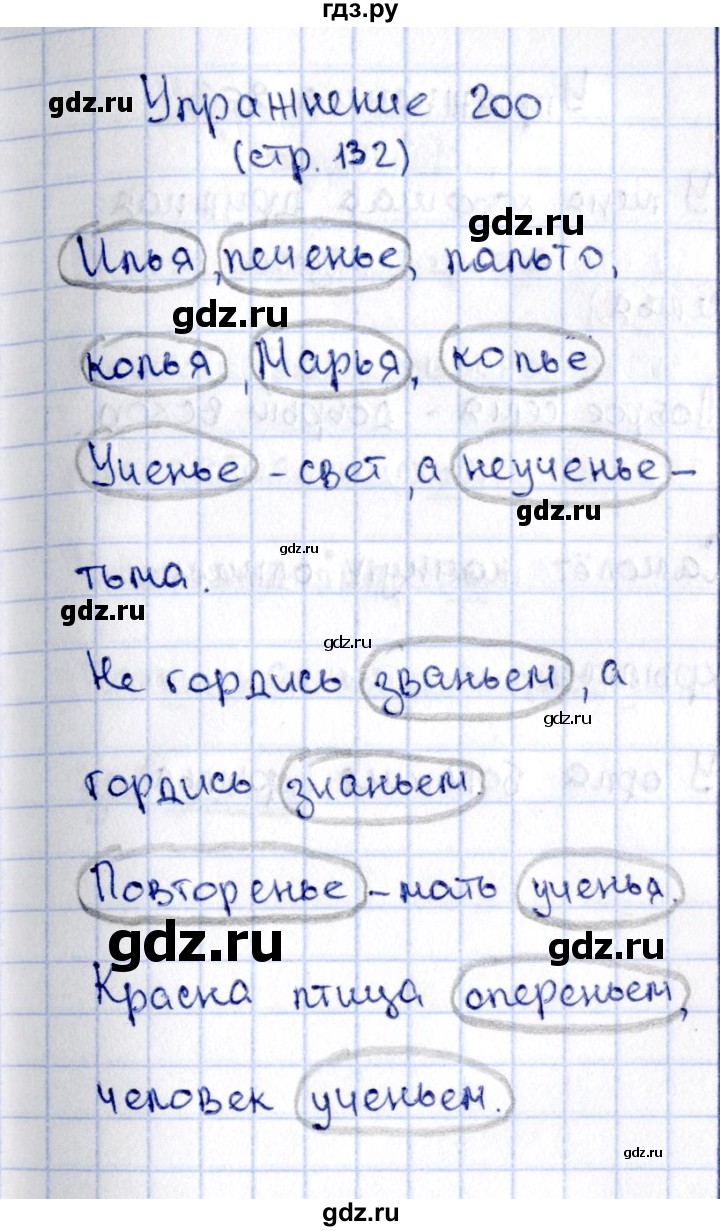 гдз.ру
Упражнение 200
gdz.ru
(стр. 132)
gdz.ru
Илья, печенье, пальто,
gdz.ru
копья, Марья, копьё
Ученье – свет, а неученье –
gdz.ru
gdz.ru
тьма.
gdz.ru
gdz.ru
Не гордись званьем, а
gdz.ru
гордись знаньем.
Повторенье – мать ученья.
gdz.ru
gdz.ru
Красна птица опереньем,
человек ученьем.
gdz.ru
gdz.ru